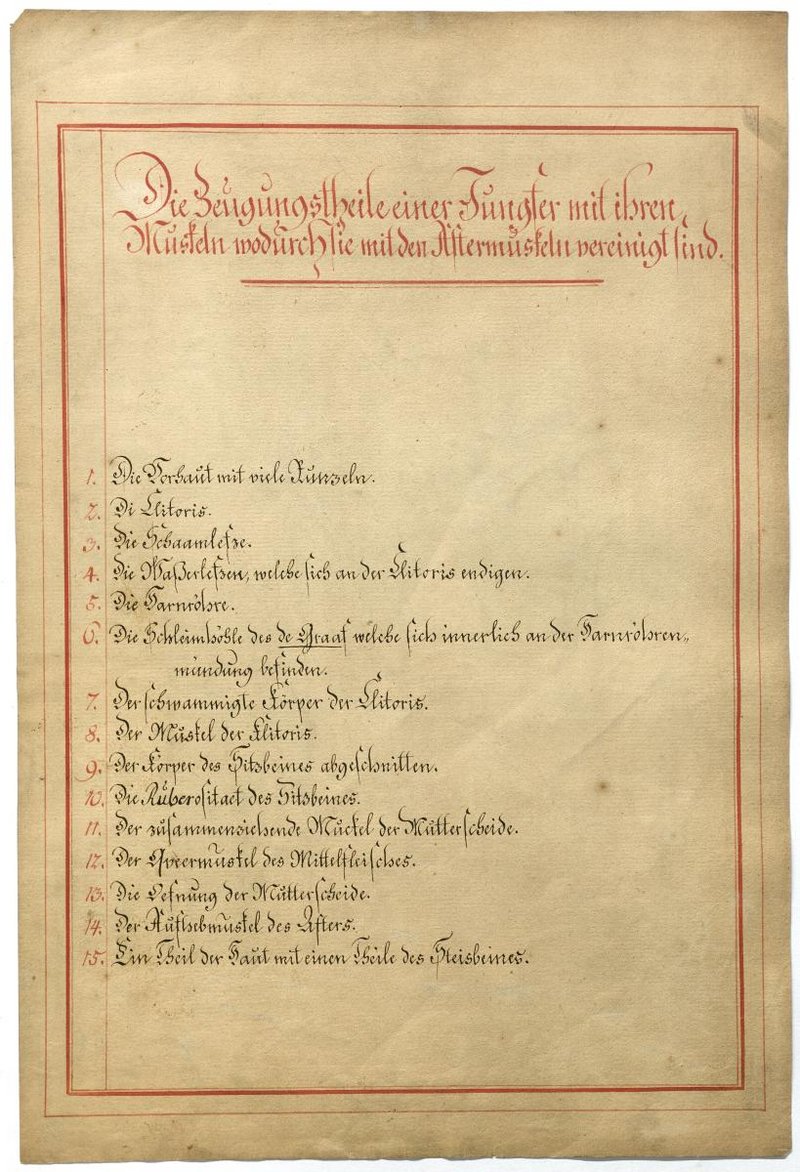 Die Zeugungstheile einer Jungfer mit ihren
Muskeln wodurch sie mit den Aftermuskeln vereinigt sind.
1. Die Vorhaut mit viele Runzeln.
2. Di Clitoris.
3. Die Schaamlefze.
4. Die Waßerlefzen, welche sich an der Clitoris endigen.
5. Die Harnröhre.
6. Die Schleimhöhle des de Graaf welche sich innerlich an der Harnröhren„
mündung befinden.
7. Der schwammigte Körper der Clitoris.
8. Der Muskel der Klitoris.
9. Der Körper des Sitzbeines abgeschnitten.
10. Die Ruberositaet des Sitzbeines.
11. Der zusammenziehende Muckel der Mutterscheide.
12. Der Queermuskel des Mittelfleisches.
13. Die Oefnung der Mutterscheide.
14. Der Aufhebmuskel des Afters.
15. Ein Theil der Haut mit einen Theile des Steisbeines.